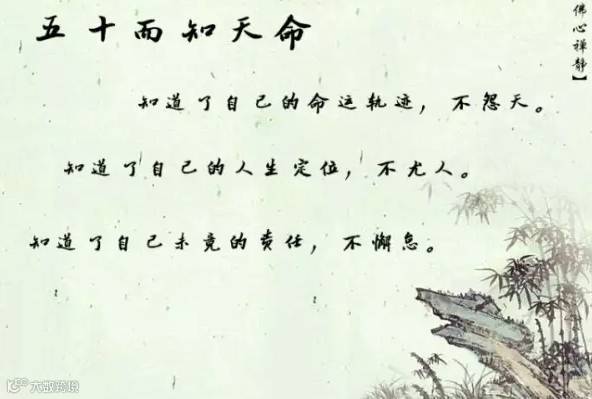 五十而知天命
知道了自己的命运轨迹，不怨天。
知道了自己的人生定位，不尤人。
知道了自己未竟的责任，不懈怠。
佛心禅静】
大数跨境